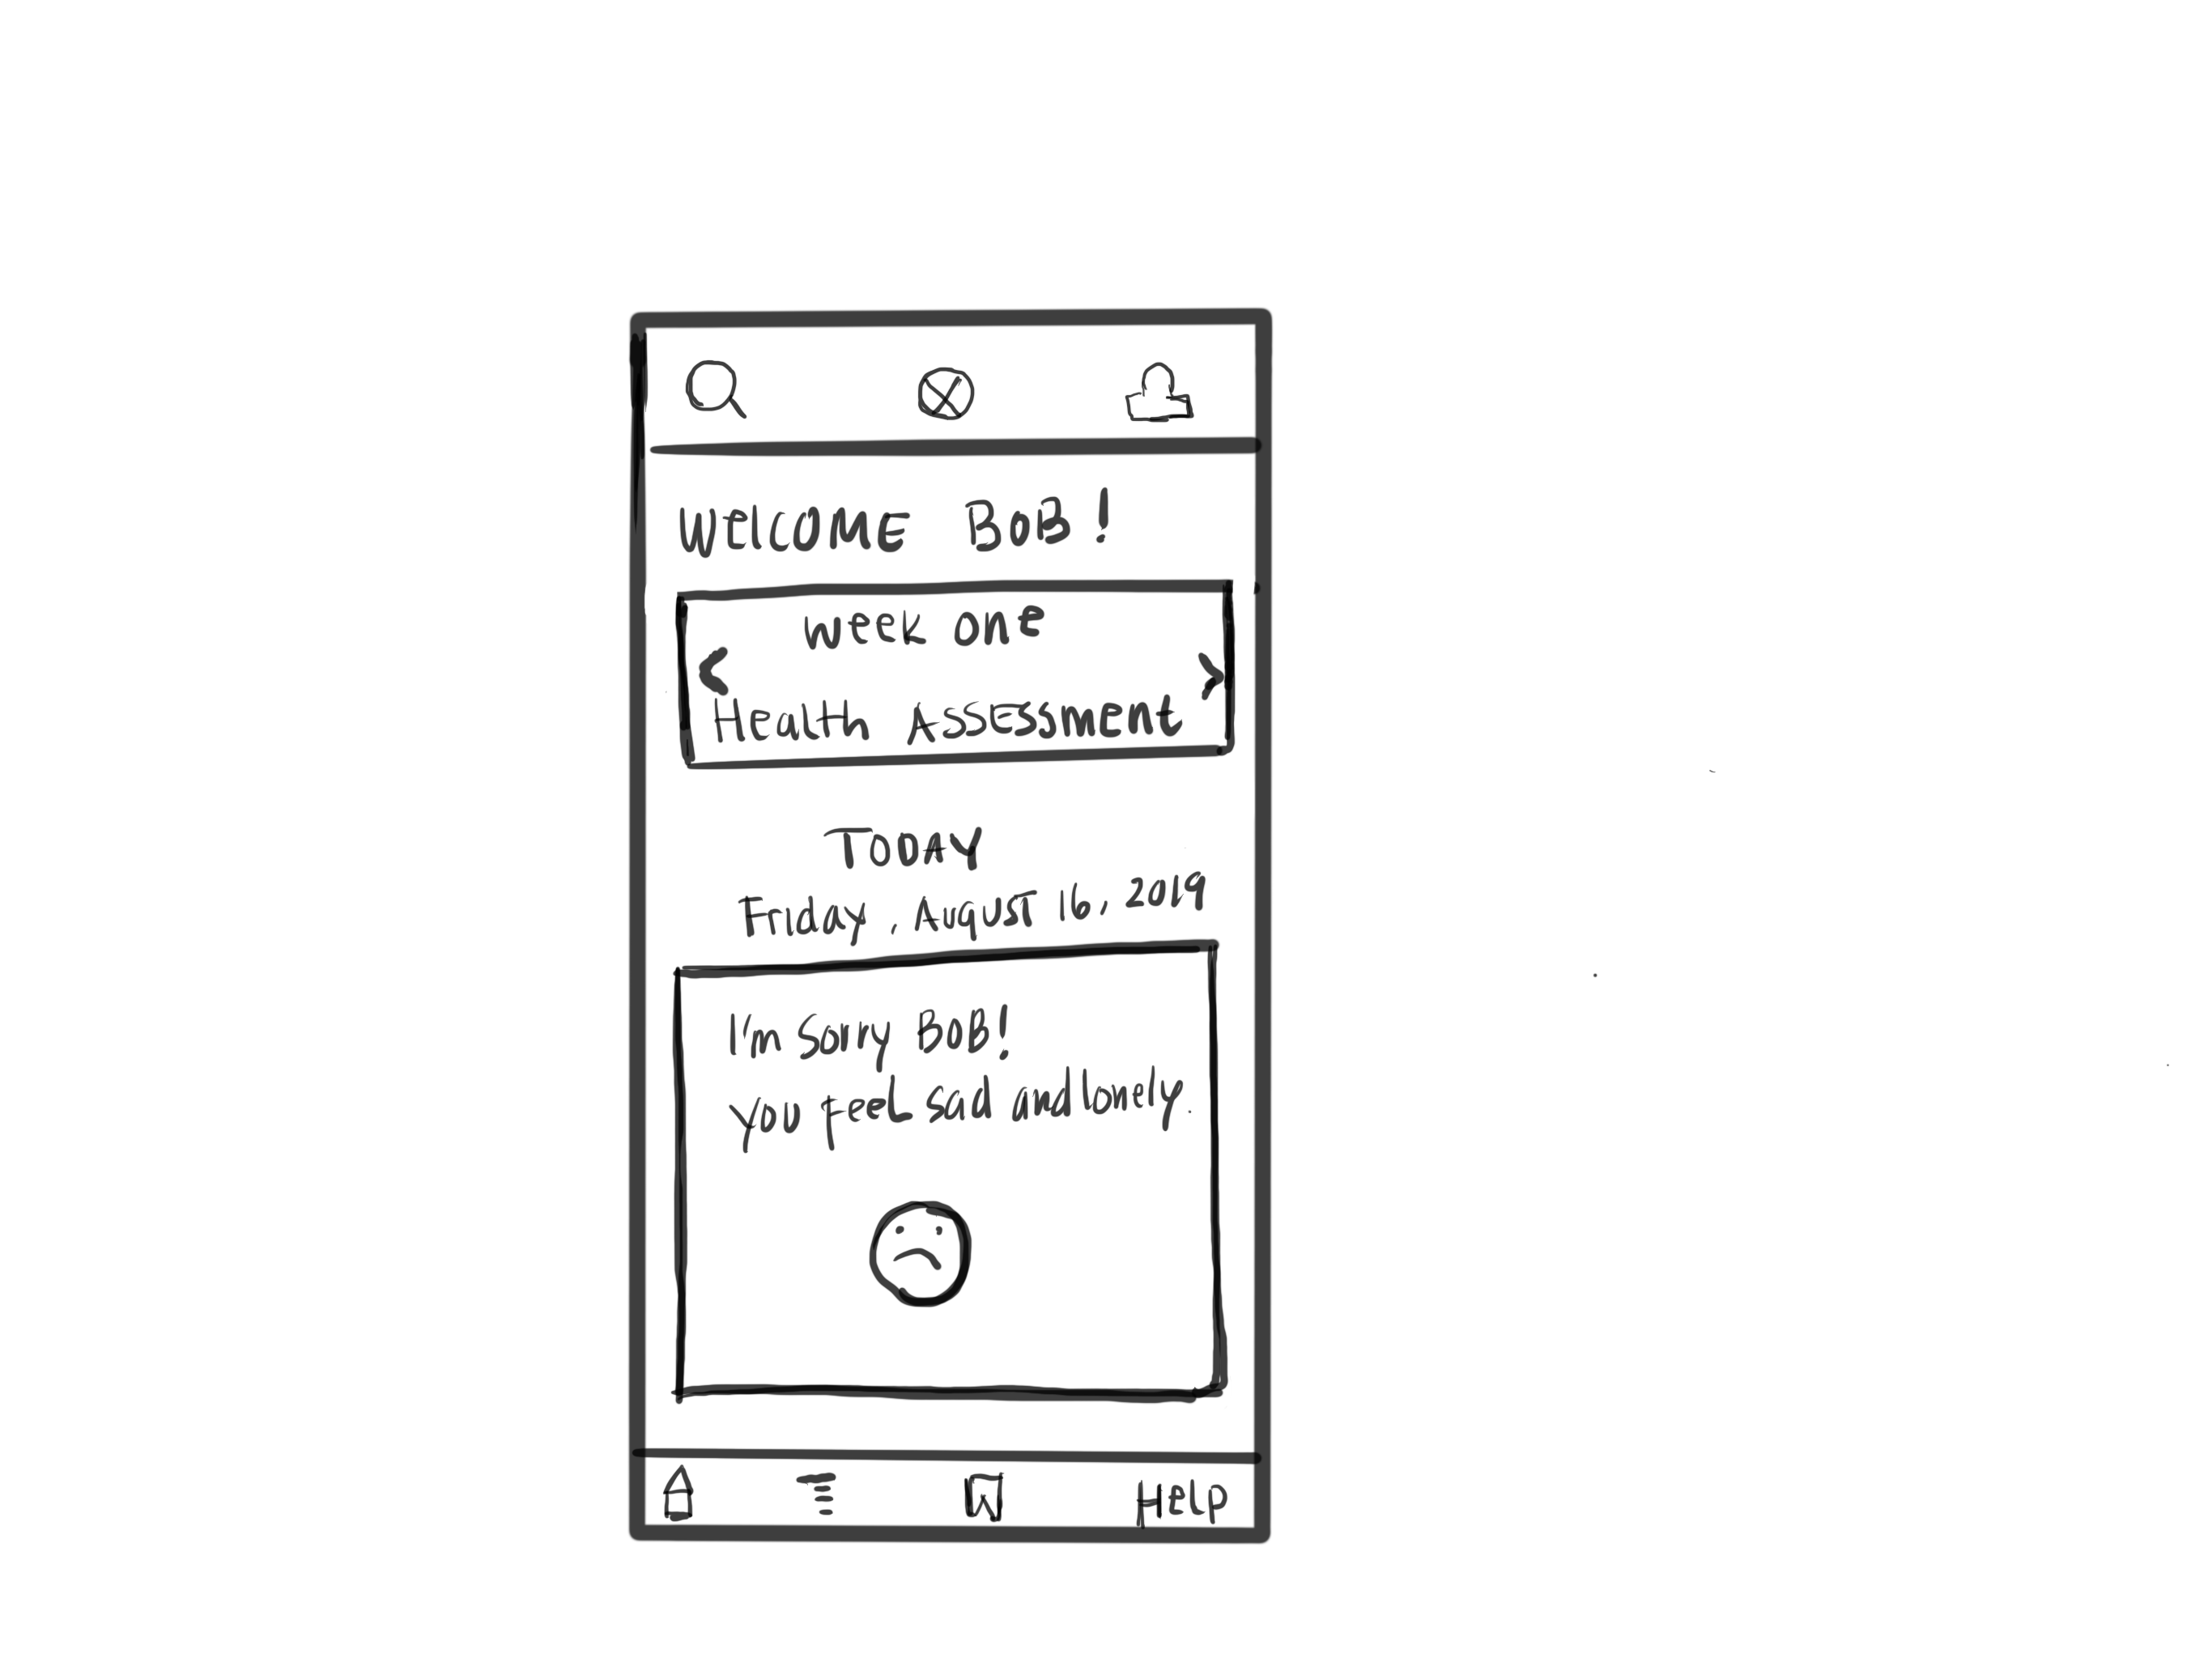 WElCOME BOB!
week one
< >
Health ASSESSment
TODAY
Friday, AuguST 16, 2019
I'm Sorry BOB!
you feel sad and lonely.
HElp